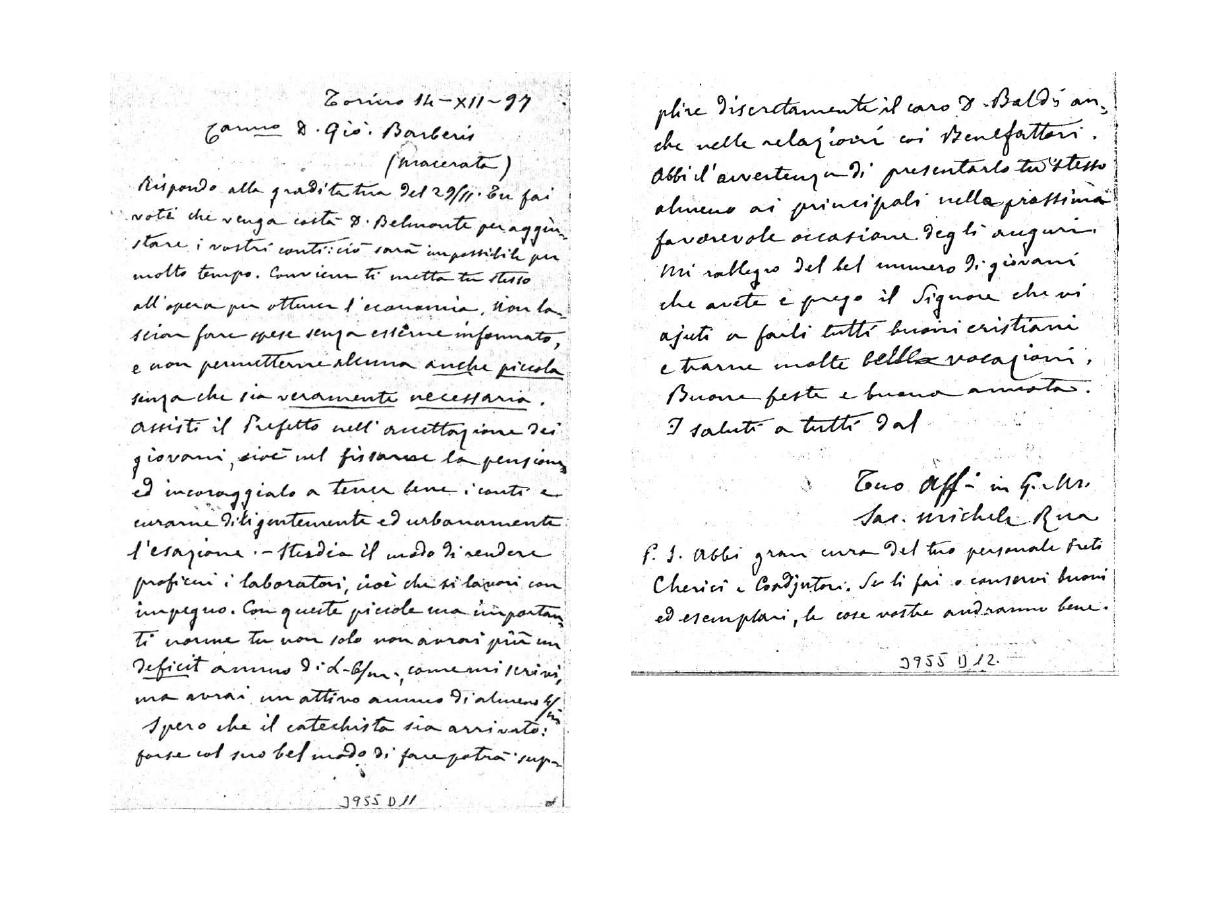 Torino 14-XII-97
Carmo D. Gio. Barberis
(Macerata)
Rispondo alla gradita tua del 29/11. Tu fai
voti che venga costà D. Belmonte per aggiu-
stare i vostri conti: ciò sarà impossibile per
molto tempo. Convien ti metta tu stesso
all'opera per ottener l'economia. Non la-
sciar fare spese senza esserne informato,
e non permetterne alcuna anche piccola
senza che sia veramente necessaria.
Assisti il Prefetto nell'accettazione dei
giovani, cioè nel fissarne la pensione
ed incoraggialo a tener bene i conti e
curarne diligentemente ed urbanamente
l'esazione. - Studia il modo di rendere
proficui i laboratori, cioè che si lavori con
impegno. Con queste piccole ma importan
ti norme tu non solo non avrai più un
deficit annuo di L. 6/m., come mi scrivi,
ma avrai un attivo annuo di almeno
Spero che il catechista sia arrivato:
forse col suo bel modo di fare potrà sup-
J955 D 11
plire discretamente il caro D. Baldi an-
che nelle relazioni coi Benefattori.
Abbi l'avvertenza di presentarlo tu stesso
almeno ai principali nella prossima
favorevole occasione degli auguri.
Mi rallegro del bel numero di giovani
che avete e prego il Signore che vi
ajuti a farli tutti buoni cristiani
e trarne molte belle vocazioni.
Buone feste e buona annata.
I saluti a tutti dal
Tuo Aff. in G. e M.
Sac. Michele Rua
P. S. Abbi gran cura del tuo personale Preti
Cherici e Coadjutori. Se li fai o conservi buoni
ed esemplari, le cose vostre andranno bene.
J955 D 12.